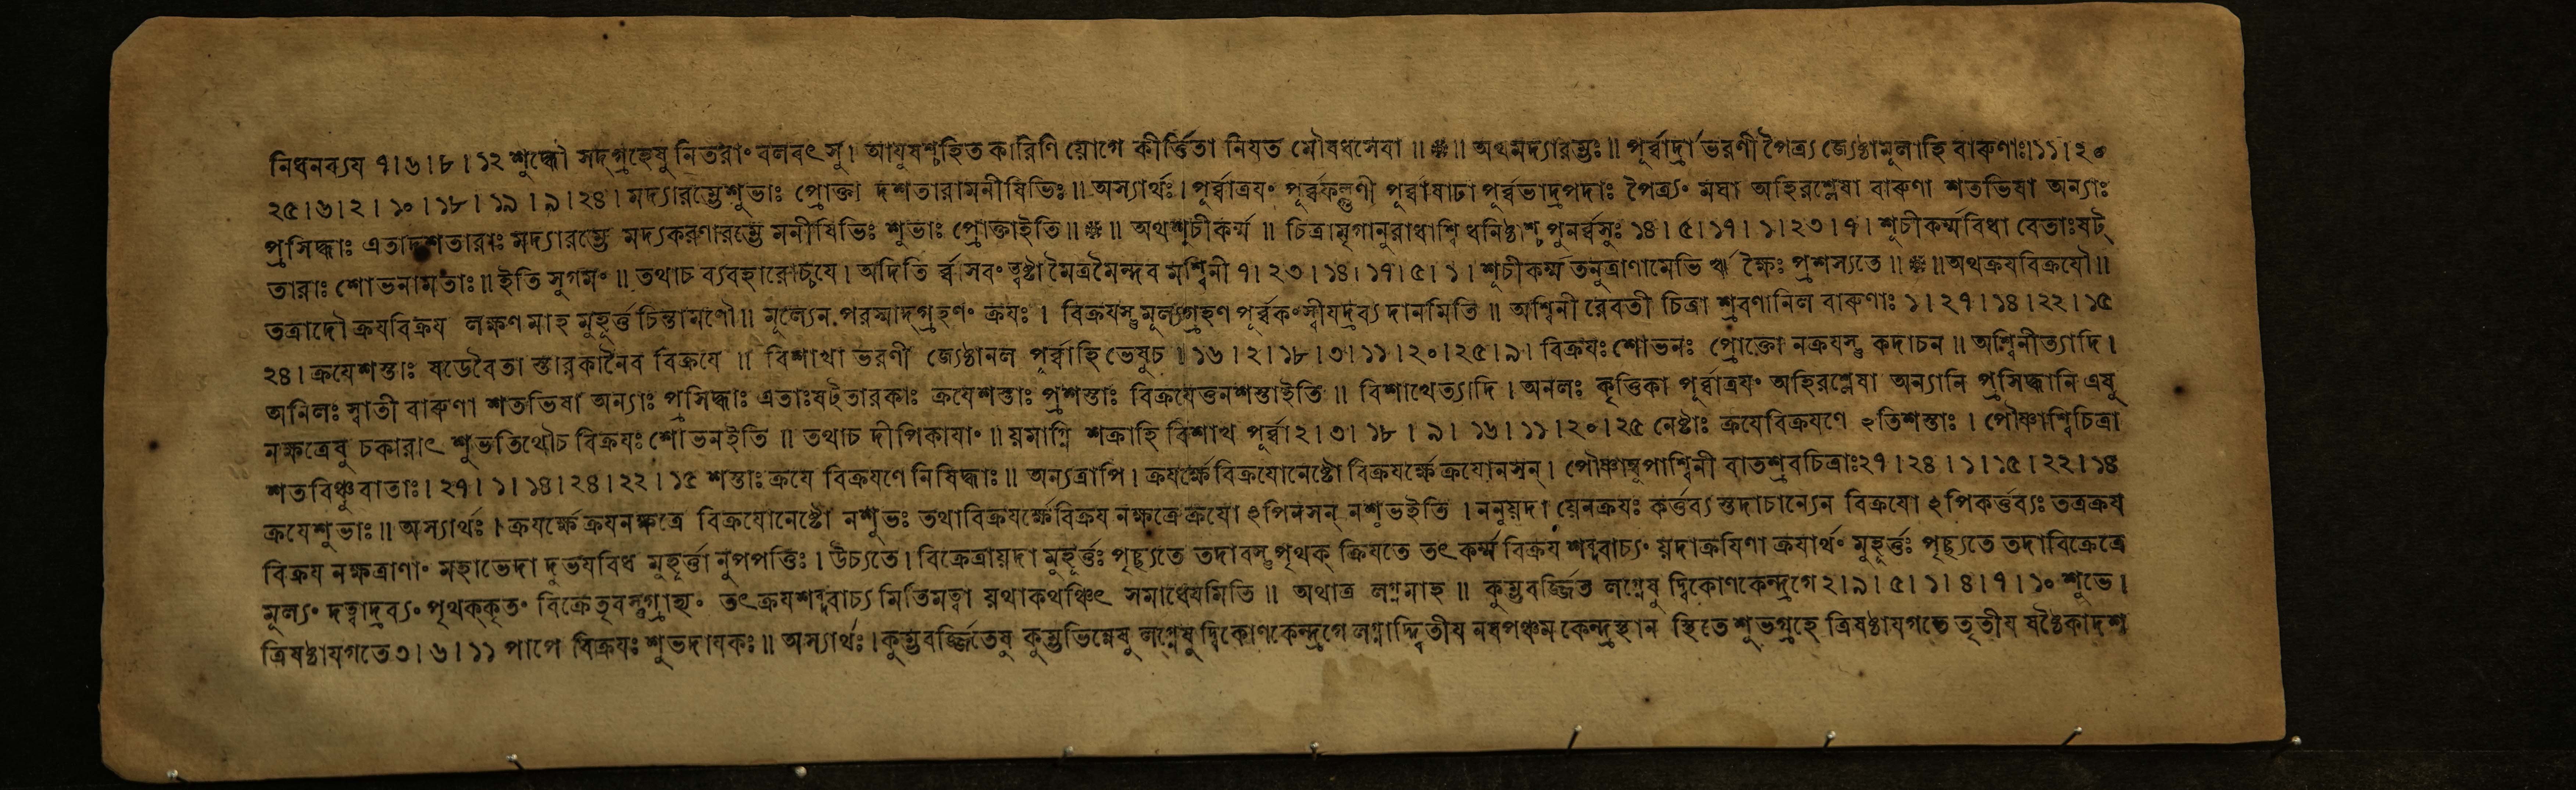 নিধনব্যয ৭।৬।৮।১২ শুদ্ধৌ সদ্গ্রহেষু নিতরাং বলবৎসু। আযুষশ্চহিত কারিণি যোগে কীর্ত্তিতা নিযত মৌষধসেবা ॥❋॥ অথমদ্যারম্ভঃ ॥ পূর্ব্বাদ্রা ভরণী পৈত্র্য জ্যেষ্ঠামূলাহি বারুণাঃ।১১।২০
২৫।৬।২।১০।১৮।১৯।৯।২৪। মদ্যারম্ভেশুভাঃ প্রোক্তা দশতারামনীষিভিঃ ॥ অস্যার্থঃ। পূর্ব্বাত্রযং পূর্ব্বফল্গুণী পূর্ব্বাষাঢা পূর্ব্বভাদ্রপদাঃ পৈত্র্যং মঘা অহিরশ্লেষা বারুণা শতভিষা অন্যাঃ
প্রসিদ্ধাঃ এতাদশতারাঃ মদ্যারম্ভে মদ্যকরণারম্ভে মনীষিভিঃ শুভাঃ প্রোক্তাইতি ॥❋॥ অথশূচীকর্ম্ম ॥ চিত্রামৃগানুরাধাশ্বি ধনিষ্ঠাশ্চ পুনর্ব্বসুঃ ১৪।৫।১৭।১।২৩।৭। শূচীকর্ম্মবিধা বেতাঃষট্
তারাঃ শোভনামতাঃ ॥ ইতি সুগমং ॥ তথাচ ব্যবহারোচ্চযে। অদিতি র্ব্বাসবং ত্বষ্টা মৈত্রমৈন্দব মশ্বিনী ৭।২৩।১৪।১৭।৫।১। শূচীকর্ম্ম তনুত্রাণামেভি ঋ ক্ষৈঃ প্রশস্যতে ॥❋॥ অথক্রযবিক্রযৌ॥
তত্রাদৌ ক্রযবিক্রয লক্ষণ মাহ মুহূর্ত্ত চিন্তামণৌ॥ মূল্যেন পরস্মাদ্গ্রহণং ক্রযঃ । বিক্রযস্তুমূল্যগ্রহণ পূর্ব্বকংস্বীযদ্রব্য দানমিতি ॥ অশ্বিনী রেবতী চিত্রা শ্রবণানিল বারুণাঃ ১।২৭।১৪।২২।১৫
২৪। ক্রযেশস্তাঃ ষডেবৈতা স্তারকানৈব বিক্রযে ॥ বিশাখা ভরণী জ্যেষ্ঠানল পূর্ব্বাহি ভেষুচ ।১৬।২।১৮।৩।১১।২০।২৫।৯। বিক্রযঃ শোভনঃ প্রোক্তো নক্রযস্তু কদাচন ॥ অশ্বিনীত্যাদি।
অনিলঃ স্বাতী বারুণা শতভিষা অন্যাঃ প্রসিদ্ধাঃ এতাঃষট্তারকাঃ ক্রযেশস্তাঃ প্রশস্তাঃ বিক্রযেত্তনশস্তাইতি ॥ বিশাখেত্যাদি। অনলঃ কৃত্তিকা পূর্ব্বাত্রযং অহিরশ্লেষা অন্যানি প্রসিদ্ধানি এষু
নক্ষত্রেষু চকারাৎ শুভতিথৌচ বিক্রযঃ শোভনইতি ॥ তথাচ দীপিকাযাং ॥ যমাগ্নি শক্রাহি বিশাখ পূর্ব্বা ২।৩।১৮।৯।১৬।১১।২০।২৫ নেষ্টাঃ ক্রযেবিক্রযণে ঽতিশস্তাঃ । পৌষ্ণাশ্বিচিত্রা
শতবিষ্ণুবাতাঃ।২৭।১।১৪।২৪।২২।১৫ শস্তাঃ ক্রযে বিক্রযণে নিষিদ্ধাঃ ॥ অন্যত্রাপি। ক্রযর্ক্ষেবিক্রযোনেষ্টো বিক্রযর্ক্ষে ক্রযোনসন্। পৌষ্ণাম্বূপাশ্বিনী বাতশ্রবচিত্রাঃ২৭।২৪।১।১৫।২২।১৪
ক্রযেশুভাঃ ॥ অস্যার্থঃ। ক্রযর্ক্ষে ক্রযনক্ষত্রে বিক্রযোনেষ্টো নশুভঃ তথাবিক্রযর্ক্ষেবিক্রয নক্ষত্রে ক্রযো ঽপিনসন্ নশুভইতি । ননুযদা যেনক্রযঃ কর্ত্তব্য স্তদাচান্যেন বিক্রযো ঽপিকর্ত্তব্যঃ তত্রক্রয
বিক্রয নক্ষত্রাণাং মহাভেদা দুভযবিধ মুহূর্ত্তা নুপপত্তিঃ। উচ্যতে। বিক্রেত্রাযদা মুহূর্ত্তঃ পৃচ্ছ্যতে তদাবস্তুপৃথক্ ক্রিযতে তৎ কর্ম্ম বিক্রয শব্দবাচ্যং যদাক্রযিণা ক্রযার্থং মুহূর্ত্তঃ পৃচ্ছ্যতে তদাবিক্রেত্রে
মূল্যং দত্বাদ্রব্যং পৃথক্কৃতং বিক্রেতৃবস্তুগ্রাহ্যং তৎক্রযশব্দবাচ্য মিতিমত্বা যথাকথঞ্চিৎ সমাধেযমিতি ॥ অথাত্র লগ্নমাহ ॥ কুম্ভবর্জ্জিত লগ্নেষু দ্বিকোণকেন্দ্রগে ২।৯।৫।১।৪।৭।১০ শুভে।
ত্রিষষ্ঠাযগতে ৩।৬।১১ পাপে বিক্রযঃ শুভদাযকঃ ॥ অস্যার্থঃ। কুম্ভবর্জ্জিতেষু কুম্ভভিন্নেষু লগ্নেষু দ্বিকোণকেন্দ্রগে লগ্নাদ্দ্বিতীয নবপঞ্চম কেন্দ্রস্থান স্থিতে শুভগ্রহে ত্রিষষ্ঠাযগতে তৃতীয ষষ্ঠৈকাদশ